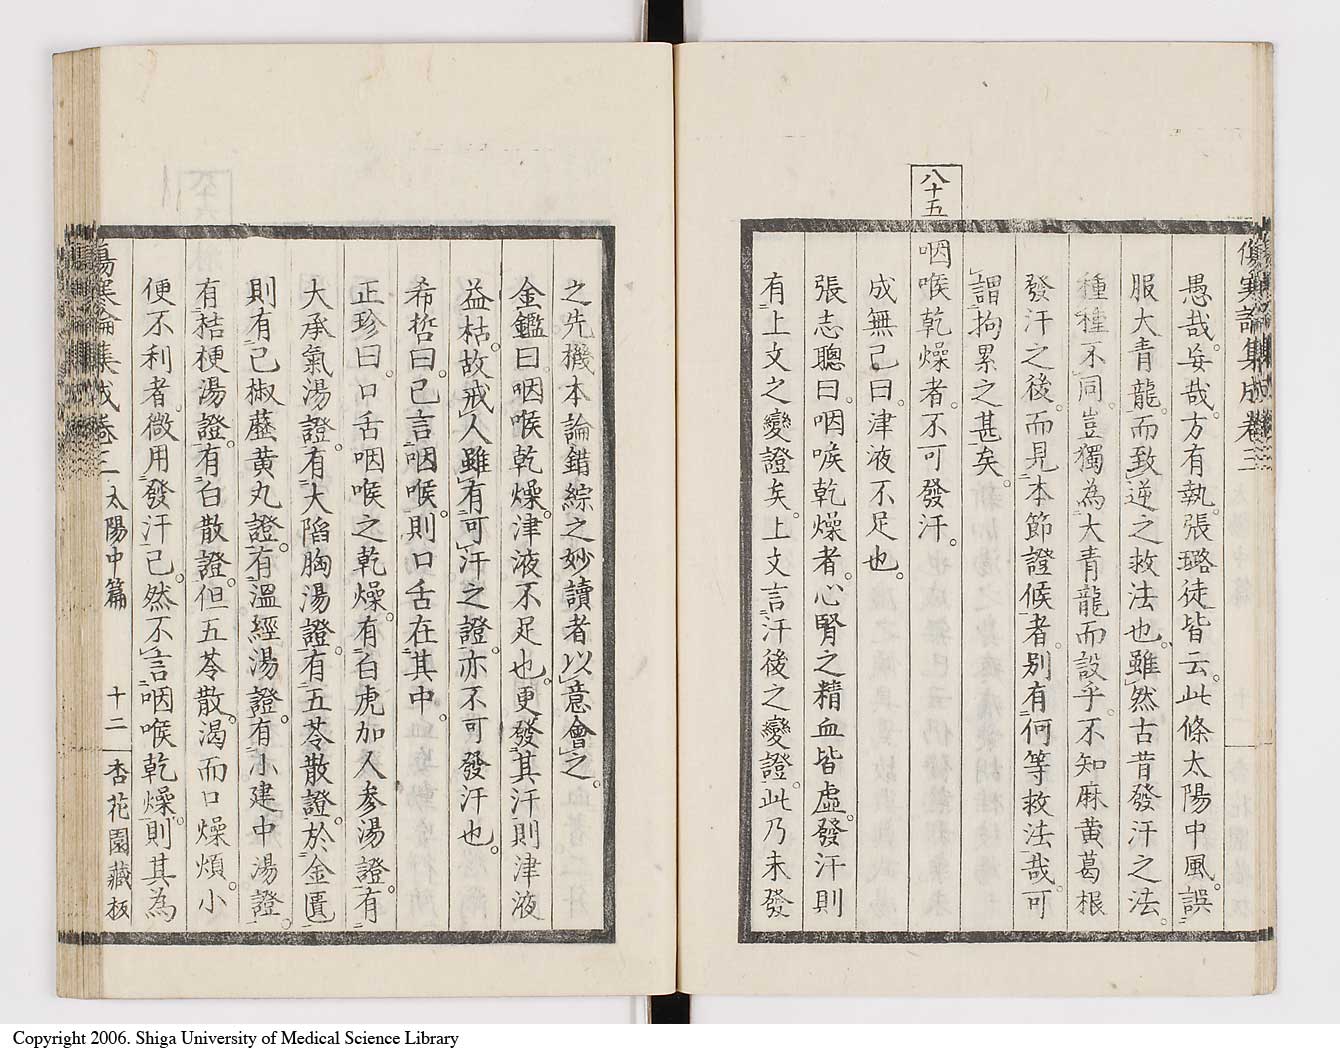 八十五
傷寒論集成卷三
愚哉。妄哉。方有執。張璐徒。皆云。此條太陽中風。誤
服大青龍。而致逆之救法也。雖然古昔發汗之法。
種種不同。豈獨為大青龍而設乎。不知麻黃葛根
發汗之後。而見本節證候者。別有何等救法哉。可
謂拘累之甚矣。
咽喉乾燥者。不可發汗。
成無己曰。津液不足也。
張志聰曰。咽喉乾燥者。心腎之精血皆虛。發汗則
有上文之變證矣。上文言汗後之變證。此乃未發
之先機。本論錯綜之妙。讀者以意會之。
金鑑曰。咽喉乾燥。津液不足也。更發其汗。則津液
益枯。故戒人雖有可汗之證。亦不可發汗也。
希哲曰。已言咽喉。則口舌在其中。
正珍曰。口舌咽喉之乾燥。有白虎加人參湯證。有
大承氣湯證。有大陷胸湯證。有五苓散證。於金匱
則有己椒藶黃丸證。有溫經湯證。有小建中湯證。
有桔梗湯證。有白散證。但五苓散。渴而口燥煩。小
便不利者。微用發汗已。然不言咽喉乾燥。則其為
傷寒論集成卷三 太陽中篇 十二 杏花園藏板
Copyright 2006. Shiga University of Medical Science Library